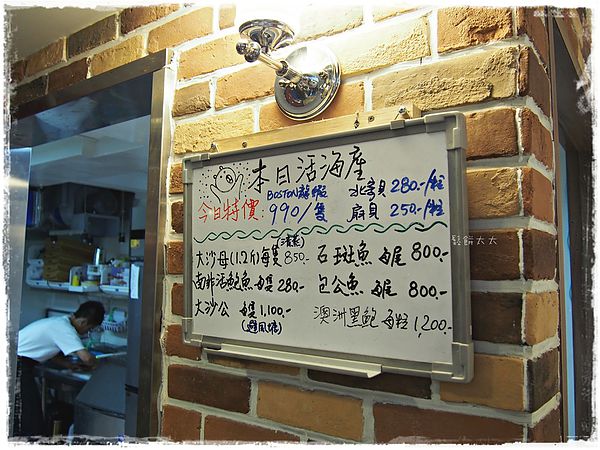 本日活海產
BOSTON龍蝦 北寄貝 280.-/粒
今日特價: 990/隻 扇貝 250.-/粒
(清蒸)
大沙母(1.2斤)每隻850.- 石斑魚 每尾 800.-
南非活鮑魚 每隻 280.- 包公魚 每尾 800.-
大沙公 每隻 1,100.- 澳洲黑鮑 每粒 1,200.-
(避風塘)
鬆餅太太